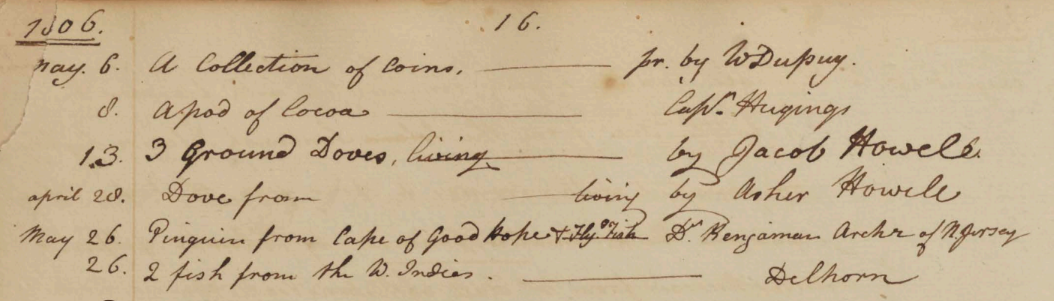 1806.
16.
May. 6. A Collection of Coins. pr. by W Dupuy.
8. A pod of Cocoa Capn. Hugings
13. 3 Ground Doves, living by Jacob Howell.
april 28. Dove from living by Asher Howell
May 26. Pinguin from Cape of Good Hope & Flyg Fish Dr. Benjaman Archr of N. Jersey
26. 2 fish from the W. Indies. Delhorn